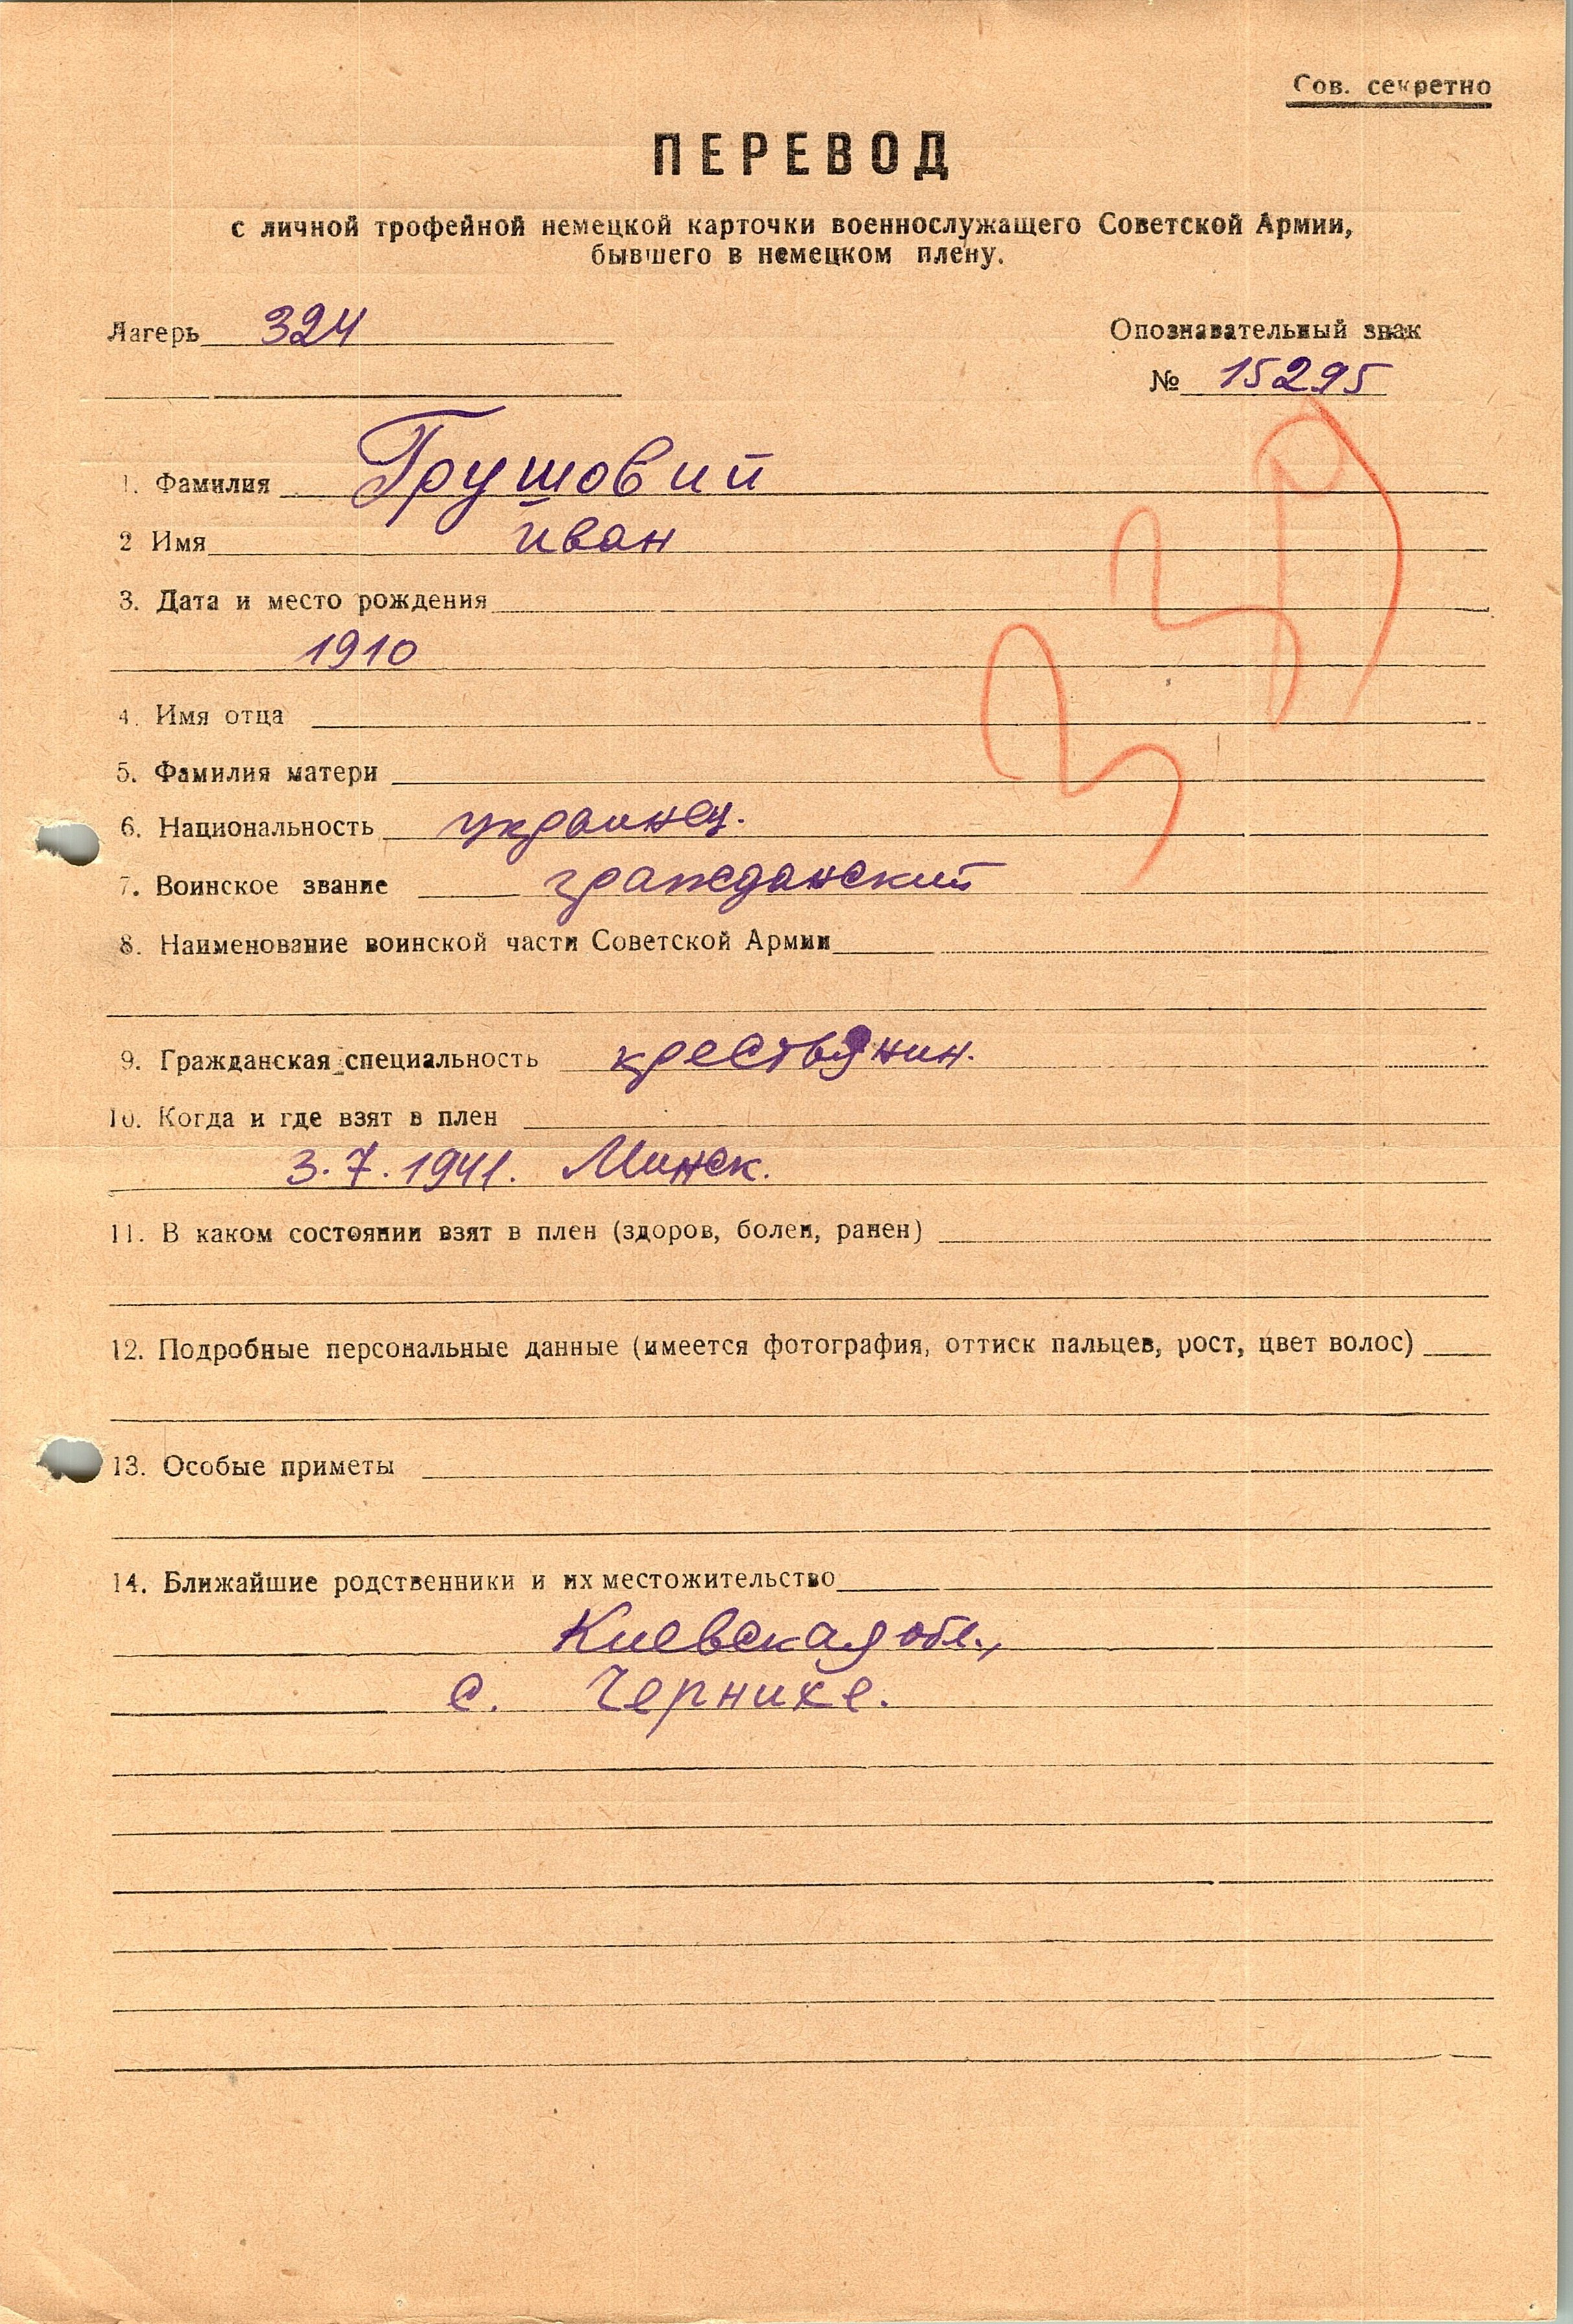 Сов. секретно
ПЕРЕВОД
с личной трофейной немецкой карточки военнослужащего Советской Армии,
бывшего в немецком плену.
Лагерь 324
Опознавательный знак
№ 15295
1. Фамилия Грушовий
2 Имя Иван
3. Дата и место рождения
1910
4. Имя отца
5. Фамилия матери
6. Национальность украинец.
7. Воинское звание гражданский
8. Наименование воинской части Советской Армии
9. Гражданская специальность крестьянин.
10. Когда и где взят в плен
3.7.1941. Минск.
11. В каком состоянии взят в плен (здоров, болен, ранен)
12. Подробные персональные данные (имеется фотография, оттиск пальцев, рост, цвет волос)
13. Особые приметы
14. Ближайшие родственники и их местожительство
Киевская обл.,
с. Чернихе.